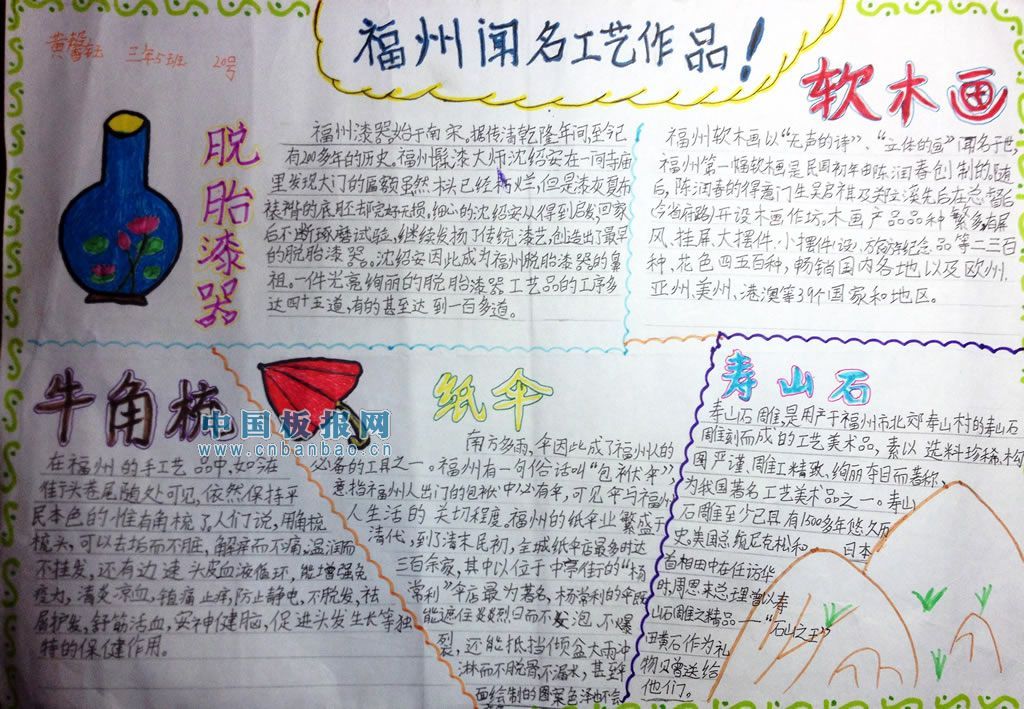 福州闻名工艺作品!
黄馨钰 三年5班 20号
脱胎漆器
福州漆器始于南宋。据传清乾隆年间,至今已
有200多年的历史。福州髹漆大师沈绍安在一间寺庙
里发现大门的匾额虽然木头已经朽烂,但是漆灰夏布
裱褙的底胚却完好无损。细心的沈绍安从得到启发,回家
后不断琢磨试验,继续发扬了传统漆艺,创造出了最早
的脱胎漆器。沈绍安因此成为福州脱胎漆器的鼻
祖。一件光亮绚丽的脱胎漆器工艺品的工序多
达四十五道,有的甚至达到一百多道。
软木画
福州软木画以“无声的诗”、“立体的画”闻名于世,
福州第一幅软木画是民国初年由陈润春创制的,随
后,陈润春的得意门生吴启棋及郑立溪先后在总督后
(今省府路)开设木画作坊。木画产品品种繁多,有屏
风、挂屏、大摆件、小摆件设、旅游纪念品等二三百
种,花色四五百种,畅销国内各地以及欧州、
亚州、美州、港澳等39个国家和地区。
牛角梳
在福州的手工艺品中,如今在
街头巷尾随处可见,依然保持平
民本色的惟有角梳了,人们说,用角梳
梳头,可以去垢而不脏,解痒而不痛,温润而
不挂发,还有边速头皮血液循环,能增强免
疫力,清炎凉血,镇痛止痒,防止静电,不脱发,祛
屑护发,舒筋活血,安神健脑,促进头发生长等独
特的保健作用。
中国板报网
www.cnbanbao.cn
纸伞
南方多雨,伞因此成了福州人的
必备的工具之一。福州有一句俗话叫“包袱伞”,
意指福州人出门的包袱中必有伞,可见伞与福州
人生活的关切程度。福州的纸伞业繁盛于
清代,到了清末民初,全城纸伞店最多时达
三百余家,其中以位于中亭街的“杨
常利”伞店最为著名,杨常利的伞既
能遮住炎炎烈日而不发泡、不爆
裂,还能抵挡倾盆大雨冲
淋而不脱骨、不漏水,甚至伞
面绘制的图案色泽也不会
寿山石
寿山石雕,是用产于福州市北郊寿山村的寿山石
雕刻而成的工艺美术品,素以选料珍稀,构
图严谨、雕工精致,绚丽夺目而著称,
为我国著名工艺美术品之一。寿山
石雕至少已具有1500多年悠久历
史。美国总统尼克松和 日本
首相田中在任访华
时,周恩来总理曾以寿
山石雕之精品——“石山之王”
田黄石作为礼
物贝曾送给
他们。